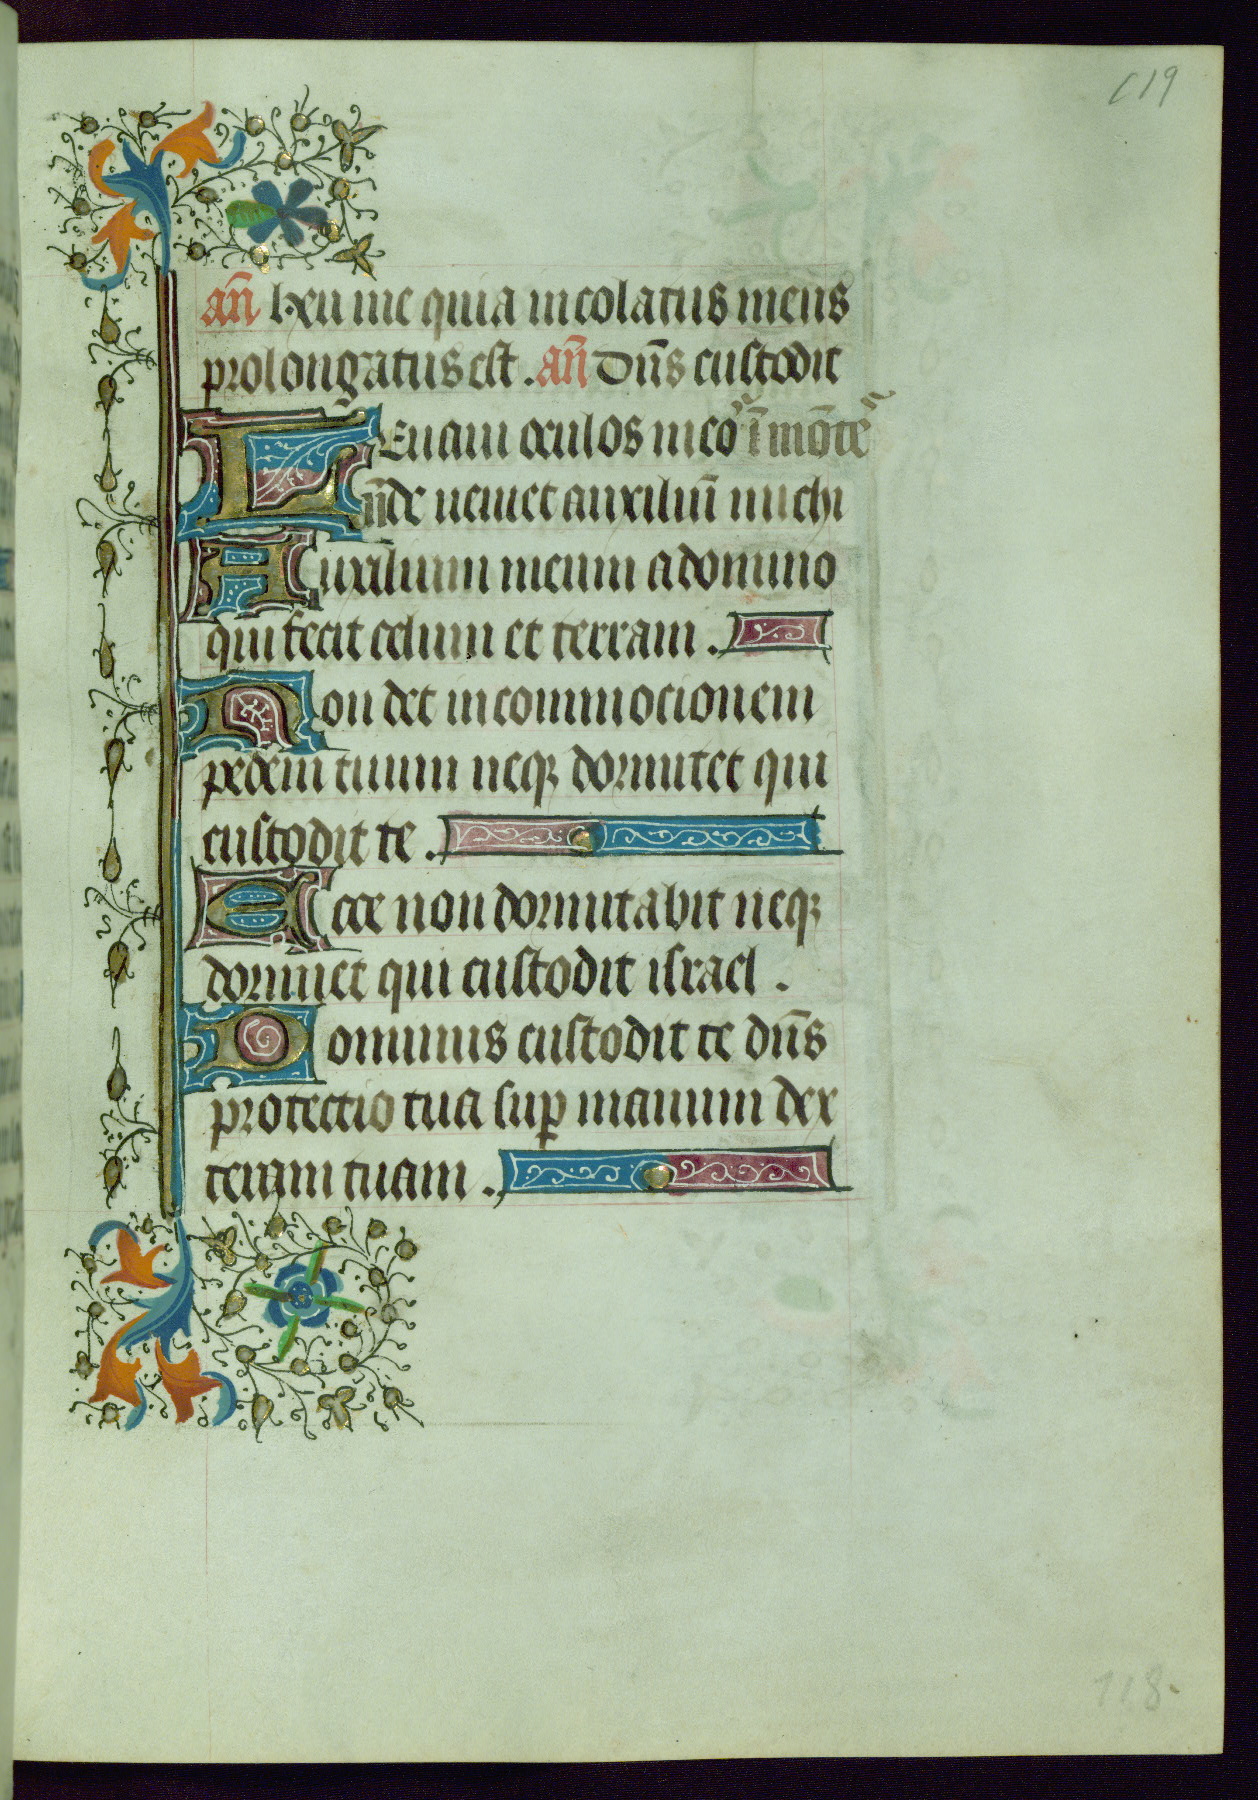 119
an̄ heu me quia incolatus meus
prolongatus est . an̄ Dn̄s custodit
Leuaui oculos meos ī mōtes
un̄de ueniet auxiliū michi
Auxilium meum a domino
qui fecit celum et terram .
Non det in commocionem
pedem tuum neqꝫ dormitet qui
custodit te .
Ecce non dormitabit neqꝫ
dormiet qui custodit israel .
Dominus custodit te dn̄s
protectio tua suꝑ manum dex
teram tuam .
118.